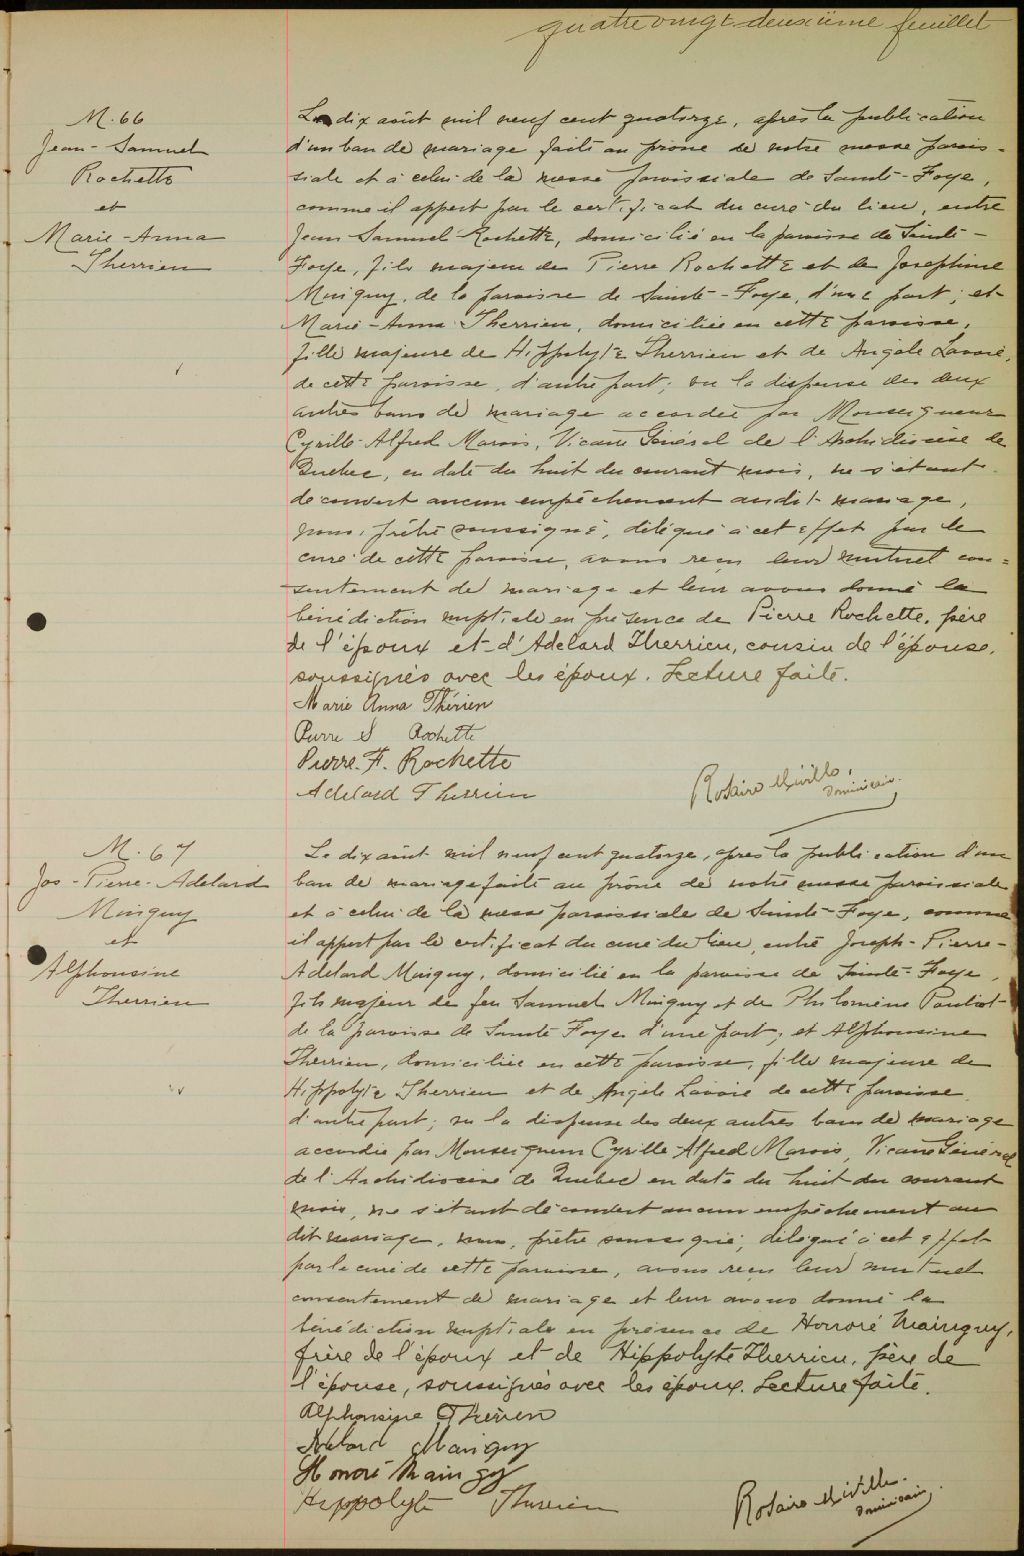 quatre vingt deuxième feuillet
M. 66
Jean-Samuel
Rochette
et
Marie-Anna
Therrien
Le dix août mil neuf cent quatorze, après la publication
d'un ban de mariage faite au prône de notre messe parois-
siale et à celui de la messe paroissiale de Sainte-Foye,
comme il appert par le certificat du curé du lieu, entre
Jean Samuel Rochette, domicilié en la paroisse de Sainte-
Foye, fils majeur de Pierre Rochette et de Josephine
Minguy, de la paroisse de Sainte-Foye, d'une part; et
Marie-Anna Therrien, domiciliée en cette paroisse,
fille majeure de Hippolyte Therrien et de Angèle Lavoie,
de cette paroisse, d'autre part; vu la dispense des deux
autres bans de mariage accordée par Monseigneur
Cyrille-Alfred Marois, Vicaire Général de l'Archidiocèse de
Québec, en date du huit du courant mois, ne s'étant
découvert aucun empêchement audit mariage,
nous, prêtre soussigné, délégué à cet effet par le
curé de cette paroisse, avons reçu leur mutuel con=
sentement de mariage et leur avons donné la
bénédiction nuptiale en présence de Pierre Rochette, père
de l'époux et d'Adelard Therrien, cousin de l'épouse,
soussignés avec les époux. Lecture faite.
Marie Anna Thérien
Pierre S Rochette
Pierre. F. Rochette
Adelard Therrien
Rosaire Miville,
Dominicain.
M. 67
Jos-Pierre-Adelard
Minguy
et
Alphonsine
Therrien
Le dix août mil neuf cent quatorze, après la publication d'un
ban de mariage faite au prône de notre messe paroissiale
et à celui de la messe paroissiale de Sainte-Foye, comme
il appert par le certificat du curé du lieu, entre Joseph-Pierre-
Adelard Minguy, domicilié en la paroisse de Sainte-Foye,
fils majeur de feu Samuel Minguy et de Philomène Pouliot
de la paroisse de Sainte Foye d'une part; et Alphonsine
Therrien, domiciliée en cette paroisse, fille majeure de
Hippolyte Therrien et de Angèle Lavoie de cette paroisse
d'autre part; vu la dispense des deux autres bans de mariage
accordée par Monseigneur Cyrille-Alfred Marois, Vicaire Général
de l'Archidiocèse de Québec en date du huit du courant
mois, ne s'étant découvert aucun empêchement au
dit mariage, nous, prêtre soussigné, délégué à cet effet
par le curé de cette paroisse, avons reçu leur mutuel
consentement de mariage et leur avons donné la
bénédiction nuptiale en présence de Honoré Mainguy,
frère de l'époux et de Hippolyte Therrien, père de
l'épouse, soussignés avec les époux. Lecture faite.
Alphonsine Therien
Adelard Mainguy
Honoré Mainguy
Hippolyte Therrien
Rosaire Miville.
Dominicain.